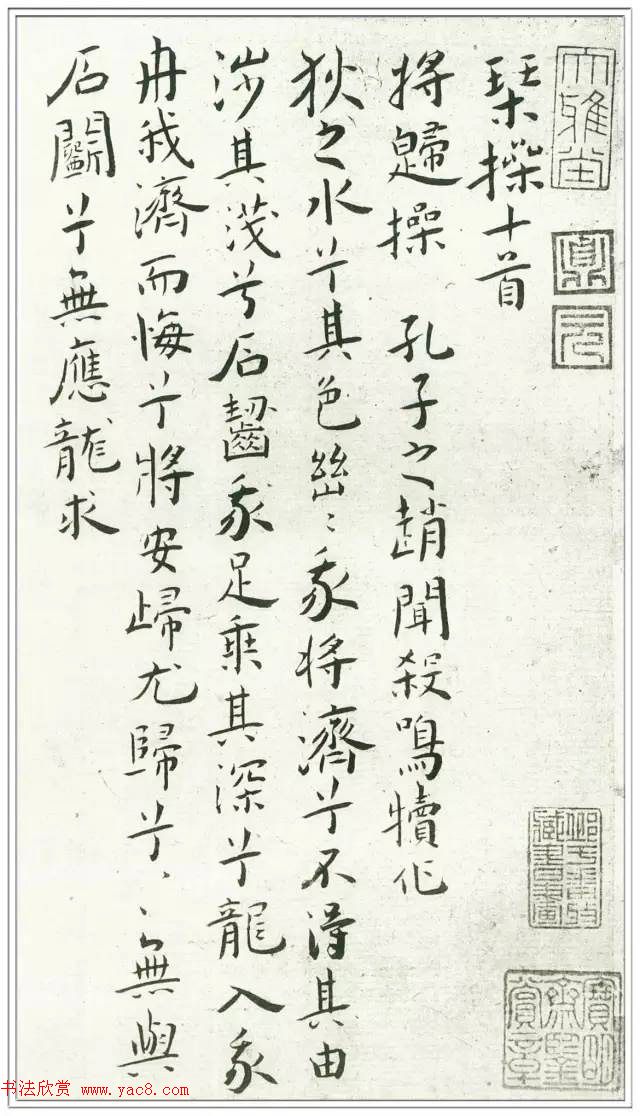 琹操十首
将歸操 孔子之趙聞殺鳴犢作
狄之水兮其色幽〻我将濟兮不得其由
涉其浅兮石齧我足乗其深兮龍入我
舟我濟而悔兮將安歸尤歸兮〻無與
石鬭兮無應龍求
大雅堂
书法欣赏 www.yac8.com